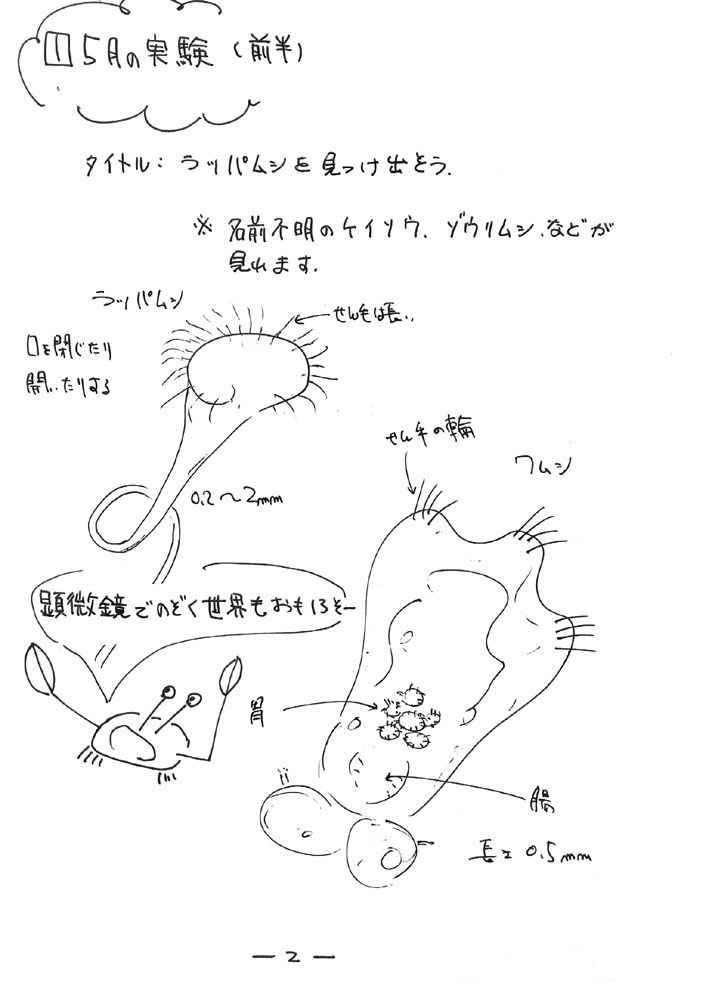 1 5月の実験(前半)
タイトル:ラッパムシを見つけ出そう.
※ 名前不明のケイソウ.ゾウリムシ.などが
見れます.
ラッパムシ
せん毛は長い.
口を閉じたり
開いたりする
0.2～2mm
せん毛の輪
ワムシ
顕微鏡でのぞく世界もおもしろぞー
胃
腸
長さ 0.5mm
－2－